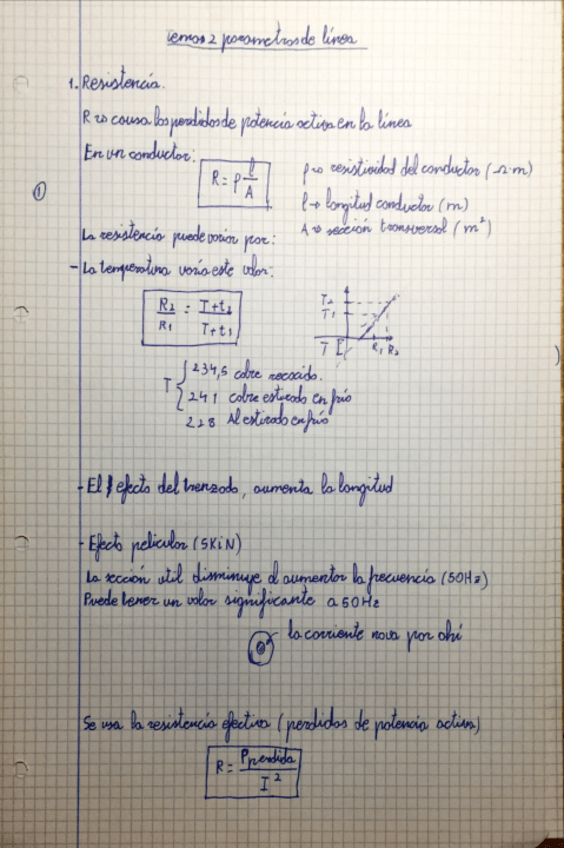 Temas 2 parametros de línea
1. Resistencia.
R → causa las perdidas de potencia activa en la línea
En un conductor:
R = ρ l/A
ρ → resistividad del conductor (Ω·m)
l → longitud conductor (m)
A → sección transversal (m²)
①
La resistencia puede variar por:
- La temperatura varia este valor:
R2/R1 = T+t2/T+t1
T2
T1
T
R1 R2
T { 234,5 cobre recocido.
241 cobre estirado en frío
228 Al estirado en frío
- El efecto del trenzado, aumenta la longitud
- Efecto pelicular (SKIN)
La sección util disminuye al aumentar la frecuencia (50Hz)
Puede tener un valor significante a 50Hz
la corriente no va por ahí
Se usa la resistencia efectiva (perdidas de potencia activa)
R = Pperdida/I²